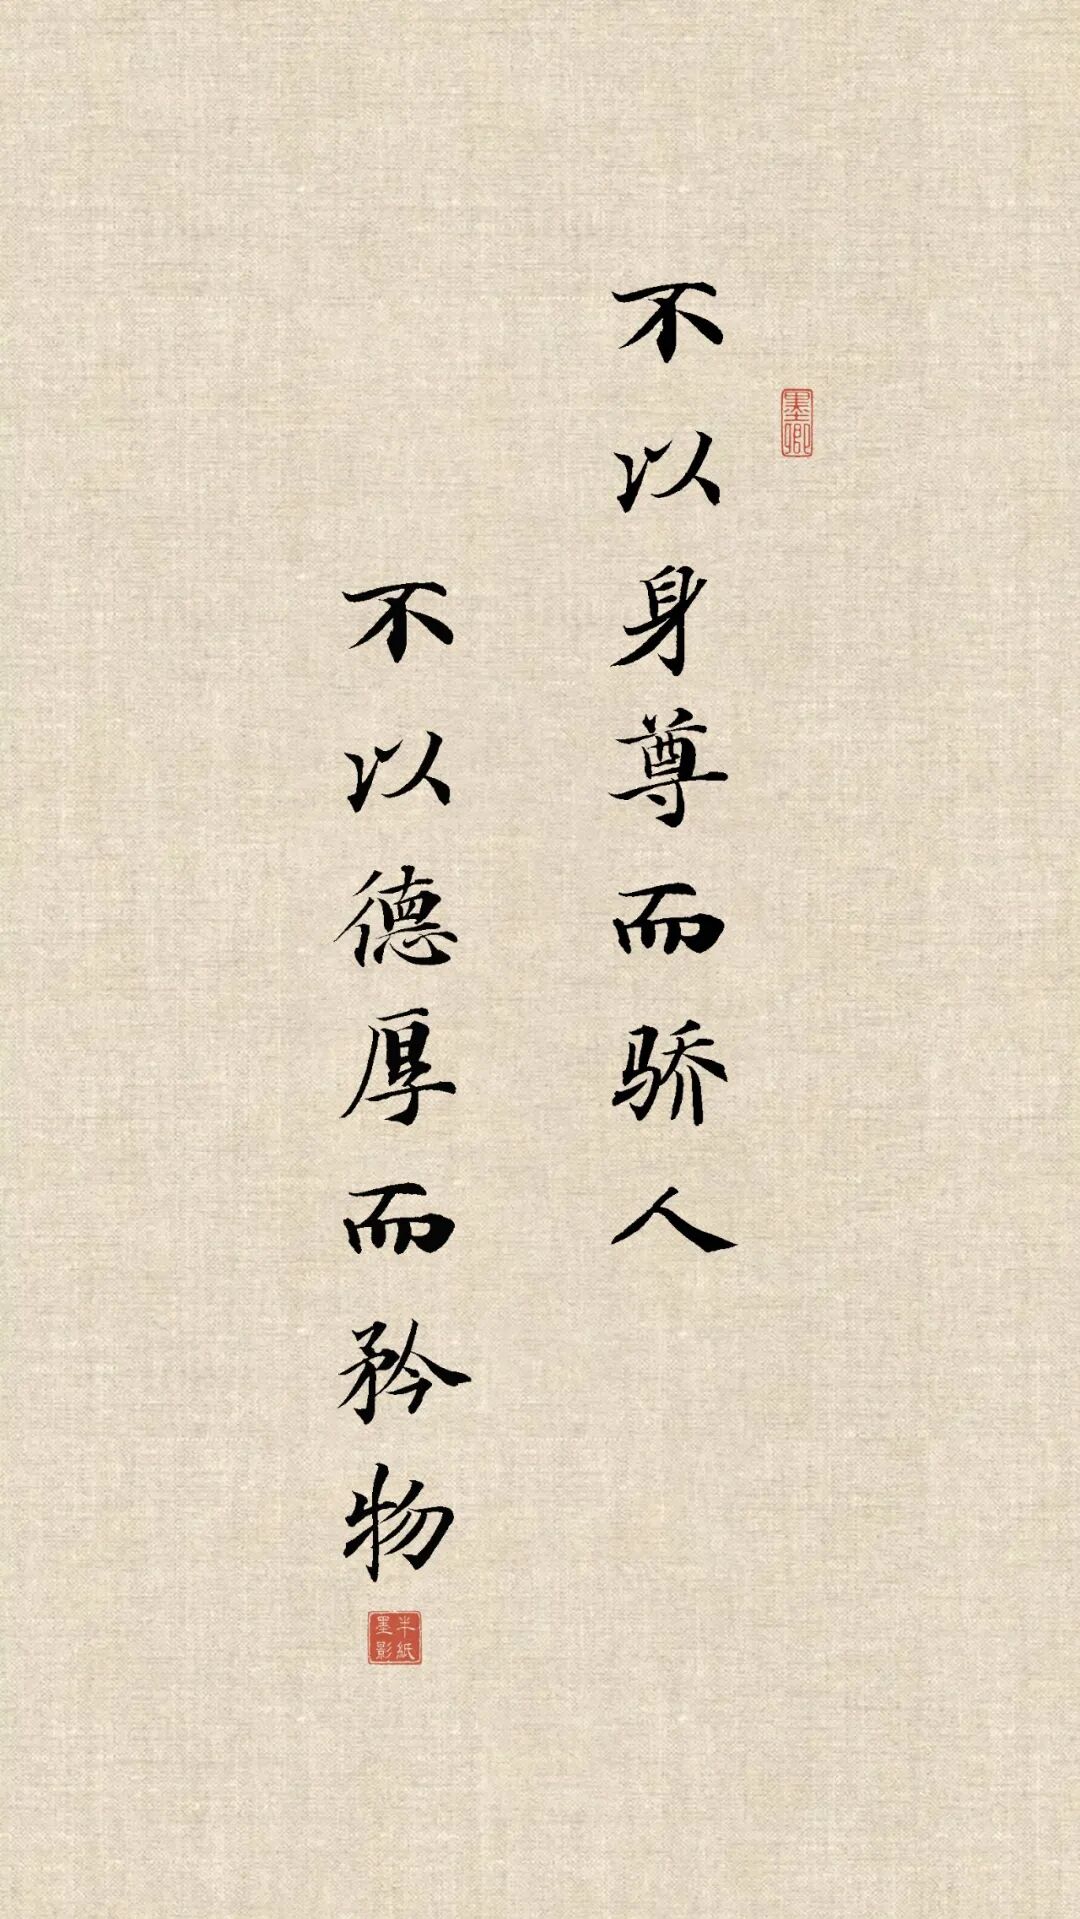 不以身尊而骄人
墨卿
不以德厚而矜物
半纸
墨影